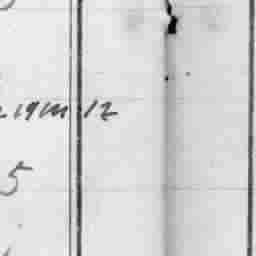 19m 12
5